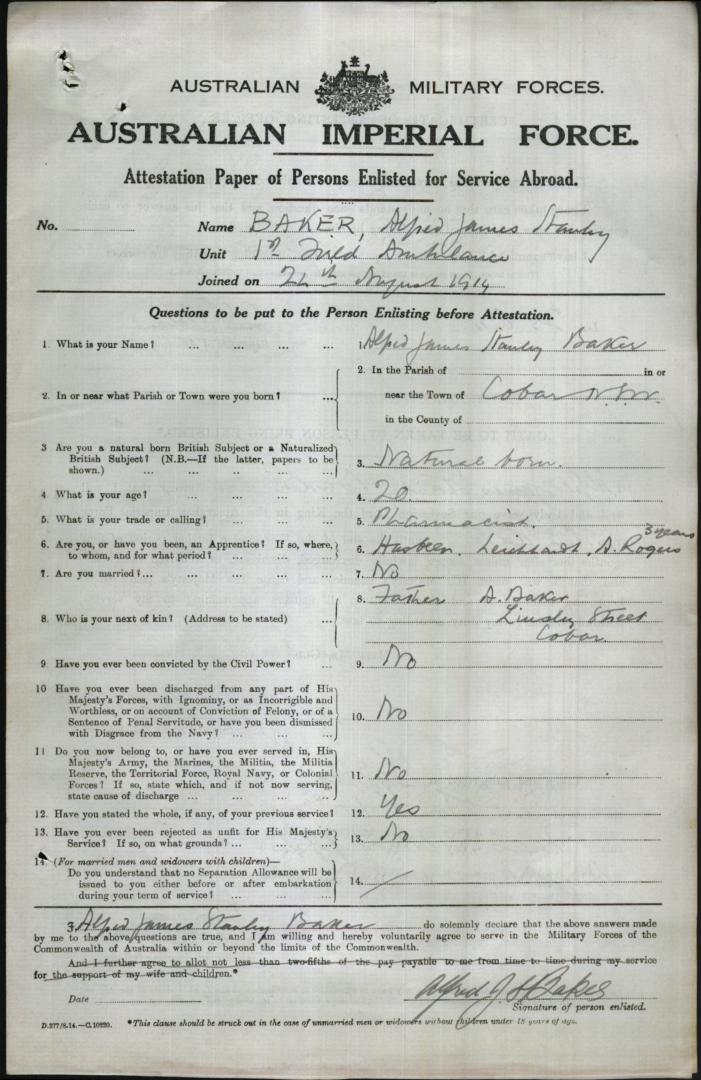 AUSTRALIAN MILITARY FORCES.
AUSTRALIAN IMPERIAL FORCE.
Attestation Paper of Persons Enlisted for Service Abroad.
No. Name BAKER, Alfred James Stanley
Unit 1st Field Ambulance
Joined on 24th August 1914
Questions to be put to the Person Enlisting before Attestation.
1. What is your Name? ... ... ... ... 1. Alfred James Stanley Baker
2. In or near what Parish or Town were you born? ... 2. In the Parish of in or
near the Town of Cobar N.S.W.
in the County of
3 Are you a natural born British Subject or a Naturalized
British Subject? (N.B.—If the latter, papers to be
shown.) ... ... ... ... 3. Natural born.
4 What is your age? ... ... ... ... 4. 20
5. What is your trade or calling? ... ... ... 5. Pharmacist.
6. Are you, or have you been, an Apprentice? If so, where,
to whom, and for what period? ... ... ... 6. Has been. Leichhardt, A. Rogers 3 years
7. Are you married?... ... ... ... ... 7. No
8. Who is your next of kin? (Address to be stated) ... 8. Father A. Baker
Street
Cobar.
9. Have you ever been convicted by the Civil Power? ... 9. No
10 Have you ever been discharged from any part of His
Majesty's Forces, with Ignominy, or as Incorrigible and
Worthless, or on account of Conviction of Felony, or of a
Sentence of Penal Servitude, or have you been dismissed
with Disgrace from the Navy? ... ... ... 10. No
11 Do you now belong to, or have you ever served in, His
Majesty's Army, the Marines, the Militia, the Militia
Reserve, the Territorial Force, Royal Navy, or Colonial
Forces? If so, state which, and if not now serving,
state cause of discharge ... ... ... ... 11. No
12. Have you stated the whole, if any, of your previous service? 12. Yes
13. Have you ever been rejected as unfit for His Majesty's
Service? If so, on what grounds? ... ... ... 13. No
14. (For married men and widowers with children)—
Do you understand that no Separation Allowance will be
issued to you either before or after embarkation
during your term of service? ... ... ... 14. /
I, Alfred James Stanley Baker do solemnly declare that the above answers made
by me to the above questions are true, and I am willing and hereby voluntarily agree to serve in the Military Forces of the
Commonwealth of Australia within or beyond the limits of the Commonwealth.
And I further agree to allot not less than two-fifths of the pay payable to me from time to time during my service
for the support of my wife and children.*
Date Alfred J. S. Baker
Signature of person enlisted.
D.277/8.14.—C.10920. *This clause should be struck out in the case of unmarried men or widowers without children under 18 years of age.